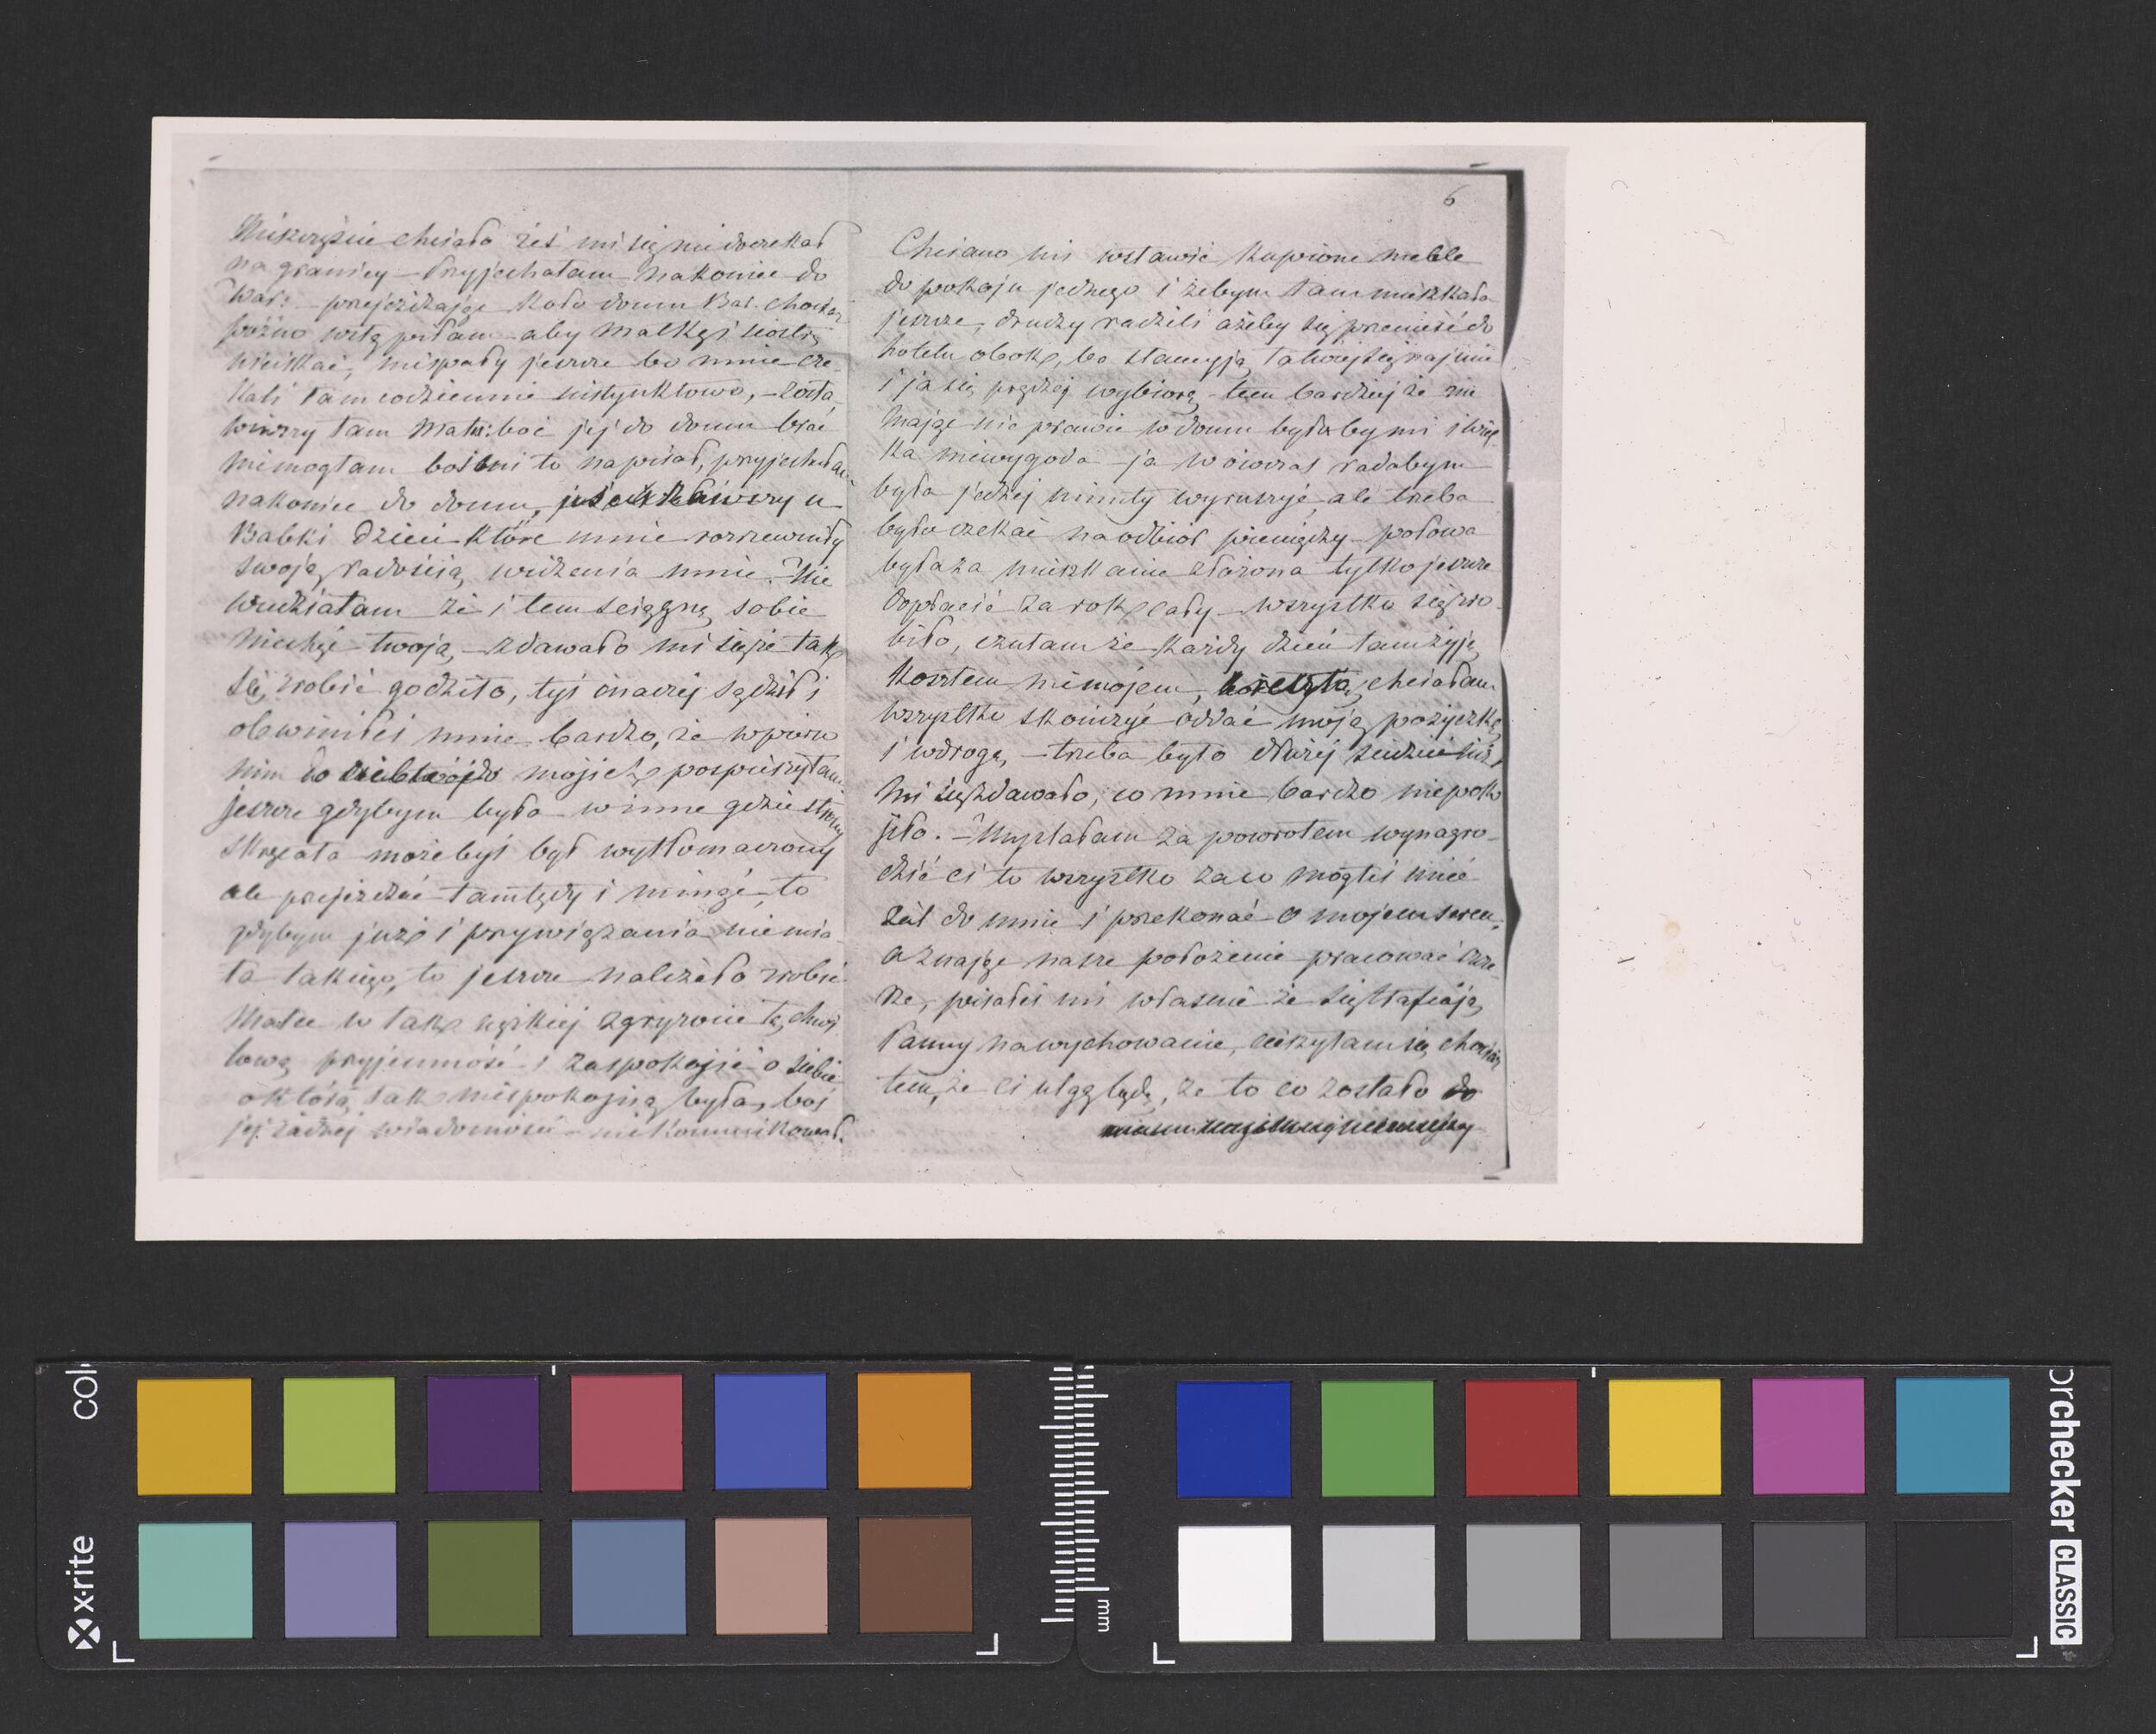 Nieszczęście chciało żeś mi się nie doczekał
na granicy – Przyjechałam nakoniec do
War: – przejeżdżając koło domu Bar. chociaż
późno wstąpiłam aby Matkę i siostrę
uściskać, niespały jeszcze bo mnie cze-
kali tam codziennie instynktowo, – zosta-
wiwszy tam
niemogłam boś mi to napisał, przyjechałam
nakoniec do domu, uściskawszy u
Babki Dzieci które mnie rozrzewniły
swoją radością widzenia mnie. – Nie
wiedziałam że i tem ściągnę sobie
niechęć twoją, – zdawało mi się że tak
się zrobić godziło, tyś inaczej sądził i
obwiniłeś mnie bardzo, że wpierw
nim do mojich pospieszyłam
jeszcze gdybym była w inne gdzie strony
skręcała możebyś był wytłomaczony
ale przejeżdżać tamtędy i minąć, to
gdybym już i przywiązania niemia-
ła takiego, to jeszcze należało zrobić
Matce w tak ciężkiej zgryzocie tę chwi-
lową przyjemność i zaspokojić o siebie
októrą tak niespokojną była, boś
jej żadnej wiadomości niekomunikował.
6
Chciano mi wstawić kupione meble
do pokoju jednego i żebym tam mieszkała
jeszcze, drudzy radzili ażeby się przenieść do
hotelu obok, bo stancyją łatwiej się najmie
i ja się prędzej wybiorę – tem bardziej że nie
mając nic prawie w domu byłaby mi i wiel-
ka niewygoda – ja wówczas radabym
była jednej minuty wyruszyć, ale trzeba
było czekać na odbiór pieniędzy – połowa
była za mieszkanie złożona tylko jeszcze
dopłacić za rok cały – wszystko się zro-
biło, czułam że każdy dzień tam żyję
kosztem niemojem, chciałam
wszystko skończyć oddać moją pożyczkę
i wdrogę, – trzeba było dłużej siedzieć niż
mi się zdawało, co mnie bardzo niepoko-
jiło. – Myślałam za powrotem wynagro-
dzić ci to wszystko zaco mogłeś mieć
żal do mnie i przekonać o mojem sercu,
a znając nasze położenie pracować szcze-
rze, pisałeś mi własnie że się trafiają
Panny na wychowanie, cieszyłam się chociaż
tem, że ci ulgą będę, że to co zostało do